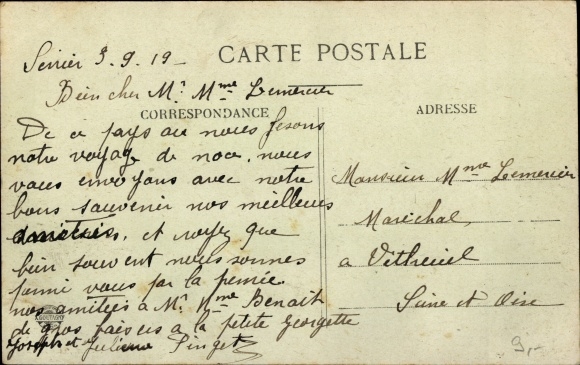 Sevrier 3.9.19_
CARTE POSTALE
Bien cher Mr. Mme Lemercier
CORRESPONDANCE
De ce pays au nous fesons
notre voyage de noce, nous
vous envoyons avec notre
bons souvenir nos meilleures
amitiés, et soyez que
bien souvent nous sommes
parmi vous par la pensée.
nos amitiés à Mr. Mme Benoit
de gros baisers a la petite Georgette
Joseph et Julienne Pinget
ADRESSE
Monsieur Mme Lemercier
Maréchal
a
Seine et Oise
9,-